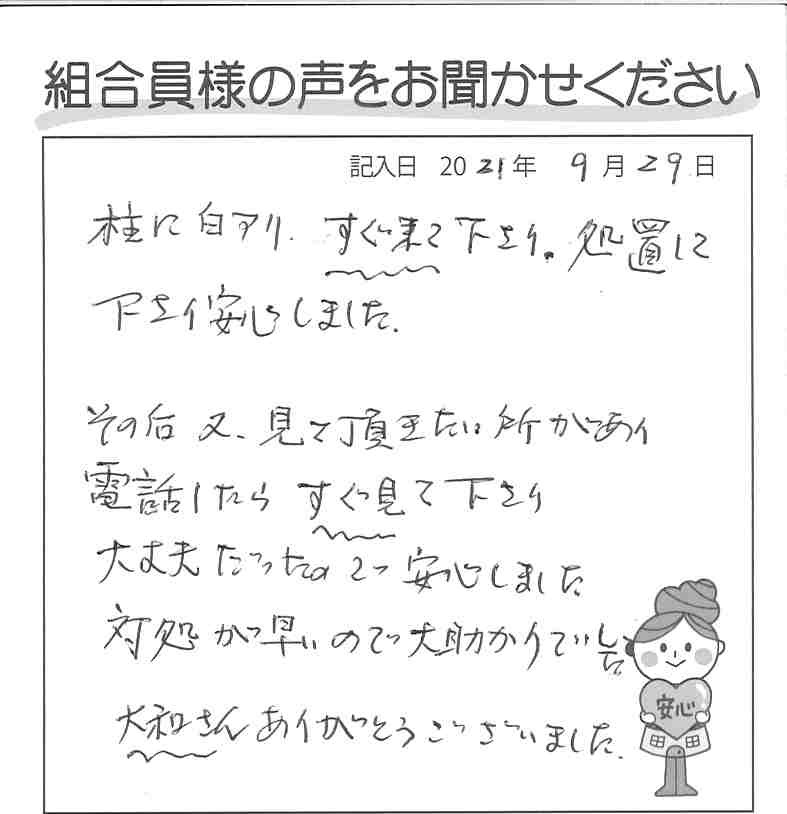 組合員様の声をお聞かせください
記入日 2021年 9月29日
柱に白アリ. すぐ来て下さり。処置して
下さり安心しました.
その后 又、見て頂きたい所があり
電話したら すぐ見て下さり
大丈夫だったので 安心しました
対処が早いので大助かりでした
大和さんありがとうございました.
安心